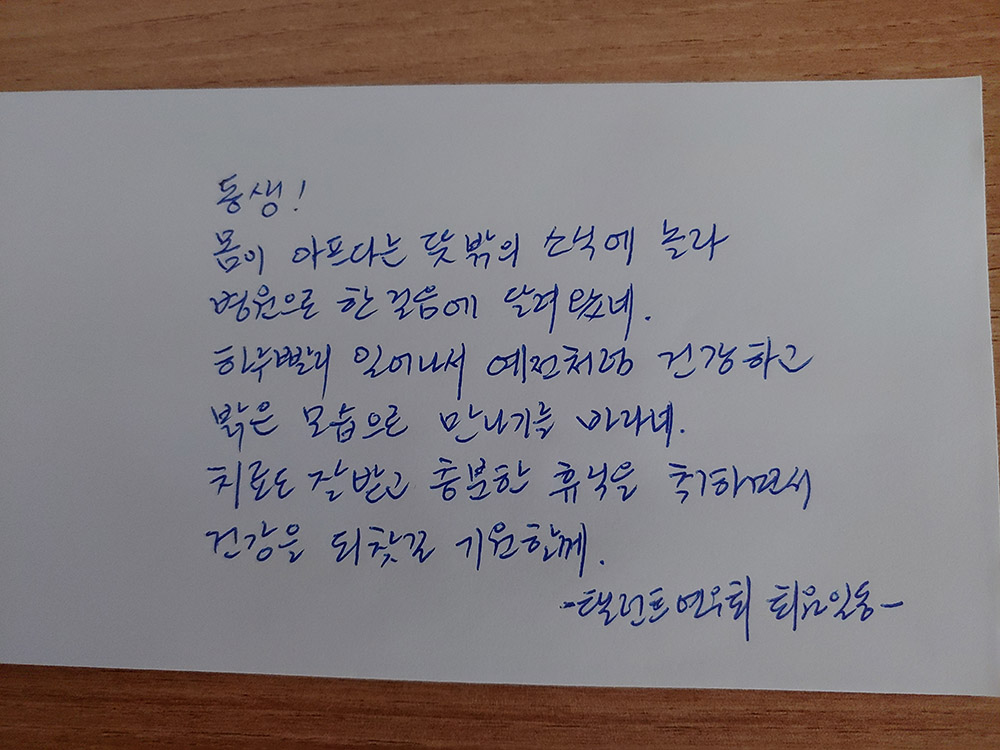 동생!
몸이 아프다는 뜻밖의 소식에 놀라
병원으로 한걸음에 달려왔네.
하루빨리 일어나서 예전처럼 건강하고
밝은 모습으로 만나기를 바라네.
치료도 잘받고 충분한 휴식을 취하면서
건강을 되찾길 기원할께.
-탤런트연우회 회원일동-